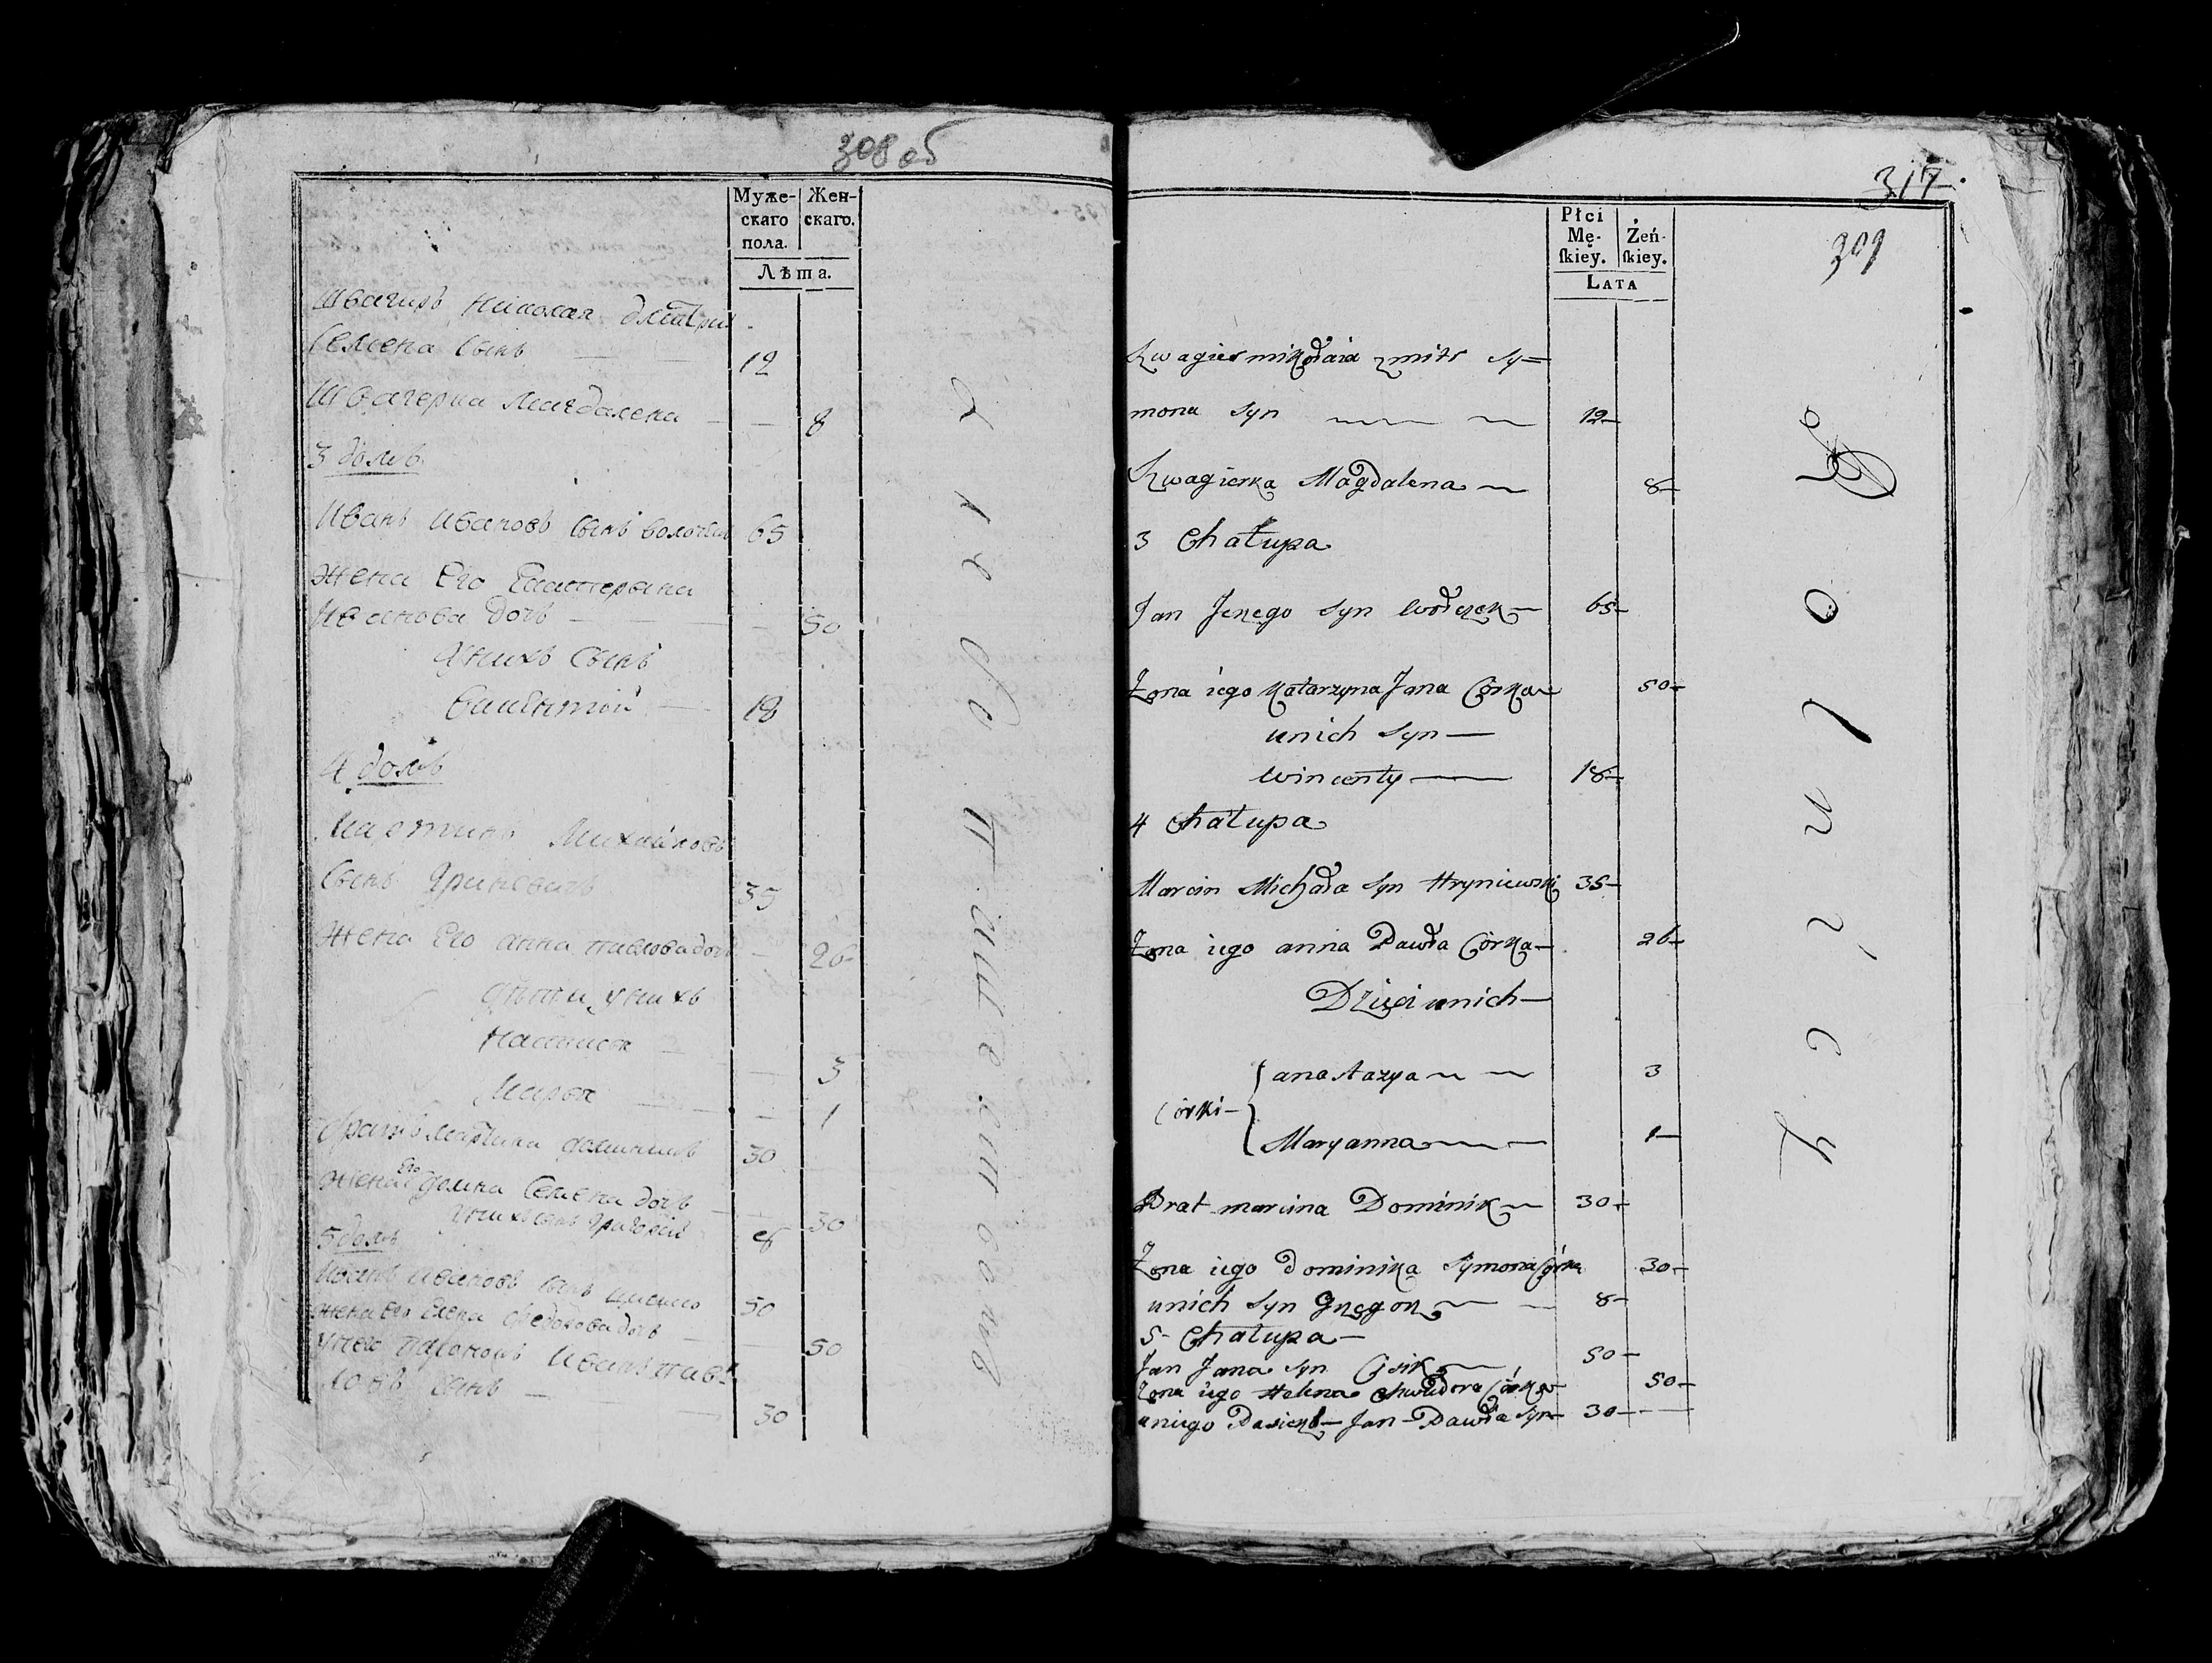 308 об
Муже-
скаго
пола.
Жен-
скаго.
Лѣта.
Швагиръ Николая Дмитри
Семена сынъ 12
Швагерка Магдалена 8
3 домъ
Иванъ Ивановъ сынъ 65
Жена Его Екатерина
Иванова дочь 50
У нихъ сынъ
18
4 домъ
Мартинъ Михайловъ
сынъ 35
Жена Его Анна Павлова дочь 26
Дѣти у нихъ
3
1
Братъ Мартина Доминикъ 30
Жена Его Домна Семена дочь 30
У нихъ сынъ Григорей 8
5 домъ
Иванъ Ивановъ сынъ 50
Жена Его Елена Федорова дочь 50
У него Иванъ Пав-
ловъ сынъ 30
317.
309
Płci
Mę-
ſkiey.
Żeń-
ſkiey.
Lata
Szwagier mikołaia zmitr Sy=
mona Syn 12
Szwagierka Magdalena 8
3 Chałupa
Jan Jerzego Syn 65
Zona iego Katarzyna Jana Córka 50
unich Syn
wincenty 18
4 Chałupa
Marcin Michała Syn Hryniewski 35
Zona iego anna Pawła Córka 26
Dzieci unich
Córki
anastazya 3
Maryanna 1
Brat marcina Dominik 30
Zona iego dominika Symona Córka 30
unich Syn Grzegorz 8
5 Chałupa
Jan Jana Syn 50
Zona iego Helena Chwedora Córka 50
uniego Pasierb Jan Pawła Syn 30